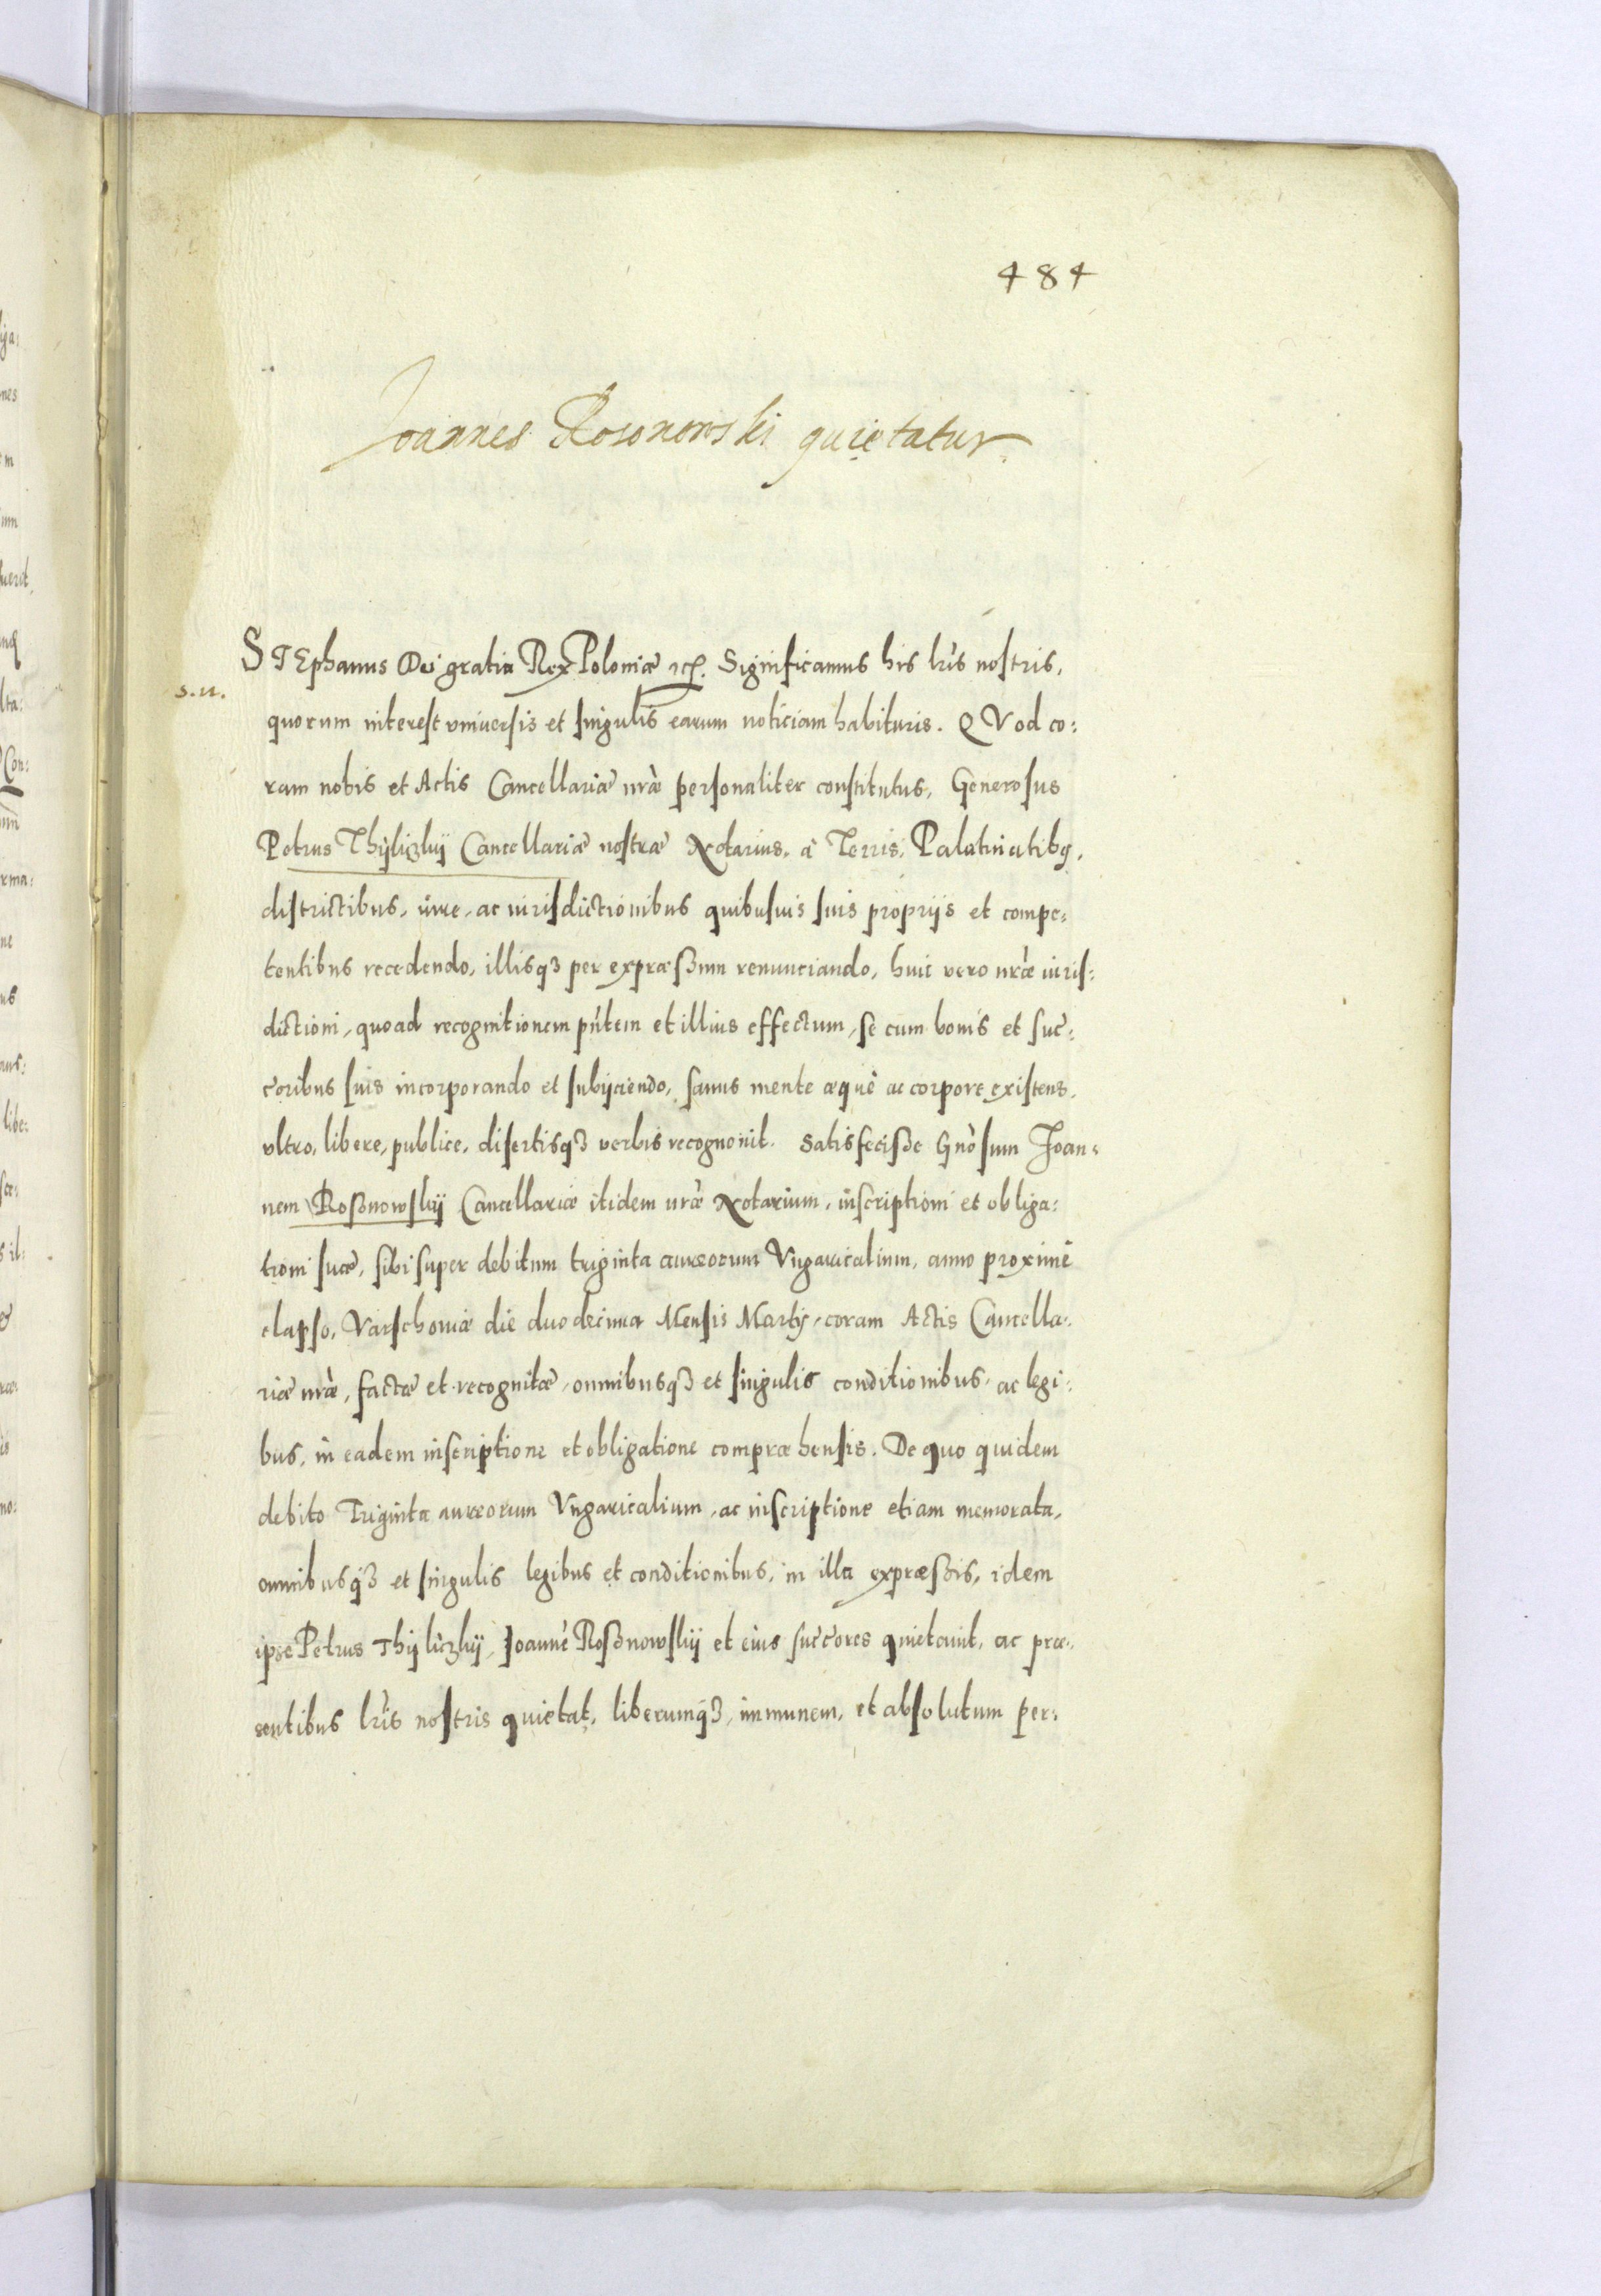 484
Joannes Rosnowski quietatur
STEphanus Dei gratia Rex Poloniæ etc. Significamus his lris nostris,
s. n.
quorum interest vniuersis et singulis earum noticiam habituris. QVod co:
ram nobis et Actis Cancellariæ nræ personaliter constitutus, Generosus
Petrus Thÿliczkÿ Cancellariæ nostræ Notarius, à Terris, Palatinatibq,
districtibus, iure, ac iurisdictionibus quibusuis suis proprijs et compe:
tentibus recedendo, illisqȝ per expræßum renunciando, huic vero nræ iuris:
dictioni, quoad recognitionem pntem et illius effectum, se cum bonis et suc:
coribus suis incorporando et subijciendo, sanus mente æquè ac corpore existens,
vltro, libere, publice, disertisqȝ verbis recognouit. Satisfecißе Gnosum Joan:
nem Roßnowskÿ Cancellariæ itidem nræ Notarium, inscriptioni et obliga:
tioni suæ, sibi super debitum triginta aureorum Vngaricalium, anno proximè
elapso, Varschouiæ die duodecima Mensis Martij, coram Actis Cancella:
riæ nræ, factæ et recognitæ, omnibusqȝ et singulis conditionibus, ac legi:
bus, in eadem inscriptione et obligatione compræhensis. De quo quidem
debito Triginta aureorum Vngaricalium, ac inscriptione etiam memorata,
omnibusqȝ et singulis legibus et conditionibus, in illa expræßis, idem
ipse Petrus Thÿliczkÿ, Joannē Roßnowskÿ et eius succores quietauit, ac præ:
sentibus lris nostris quietat, liberumqȝ, immunem, et absolutum per: